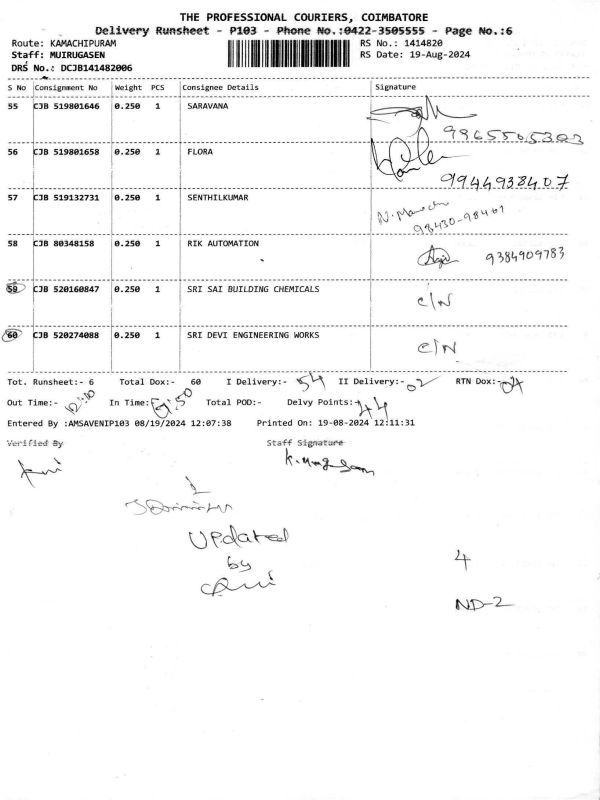 THE PROFESSIONAL COURIERS, COIMBATORE
Delivery Runsheet - P103 - Phone No.:0422-3505555 - Page No.:6
Route: KAMACHIPURAM RS No.: 1414820
Staff: MUIRUGASEN RS Date: 19-Aug-2024
DRS No.: DCJB141482006
S No Consignment No Weight PCS Consignee Details Signature
55 CJB 519801646 0.250 1 SARAVANA
9865505303
56 CJB 519801658 0.250 1 FLORA
9944938407
57 CJB 519132731 0.250 1 SENTHILKUMAR
98430-98461
58 CJB 80348158 0.250 1 RIK AUTOMATION 9384909783
59 CJB 520160847 0.250 1 SRI SAI BUILDING CHEMICALS C/N
60 CJB 520274088 0.250 1 SRI DEVI ENGINEERING WORKS C/N
Tot. Runsheet:- 6 Total Dox:- 60 I Delivery:- 54 II Delivery:- 02 RTN Dox:- 04
Out Time:- 12:10 In Time:- :50 Total POD:- Delvy Points:- 44
Entered By :AMSAVENIP103 08/19/2024 12:07:38 Printed On: 19-08-2024 12:11:31
Verified By Staff Signature
Updated
by
4
ND-2